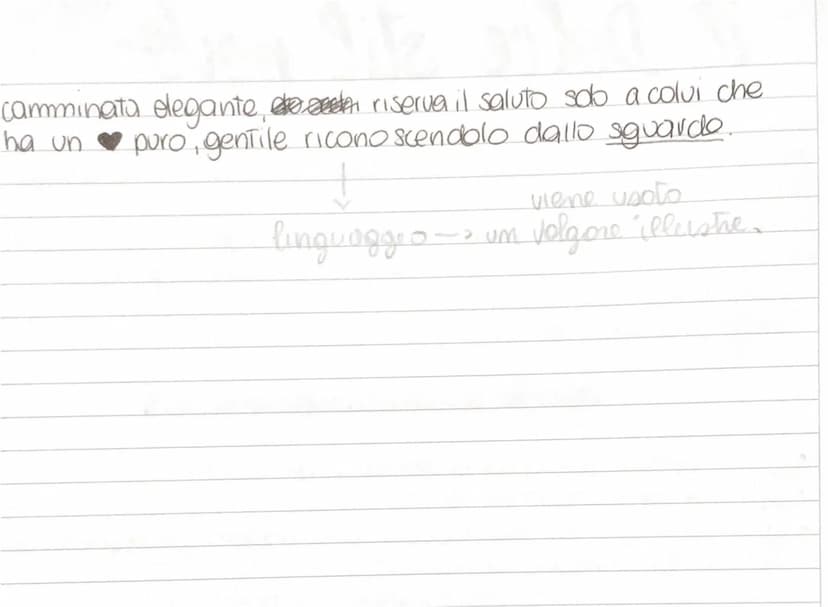 camminata elegante, riserva il saluto solo a colui che
ha un ♥ puro, gentile riconoscendolo dallo sguardo.
viene usato
linguaggio → un volgare illustre.